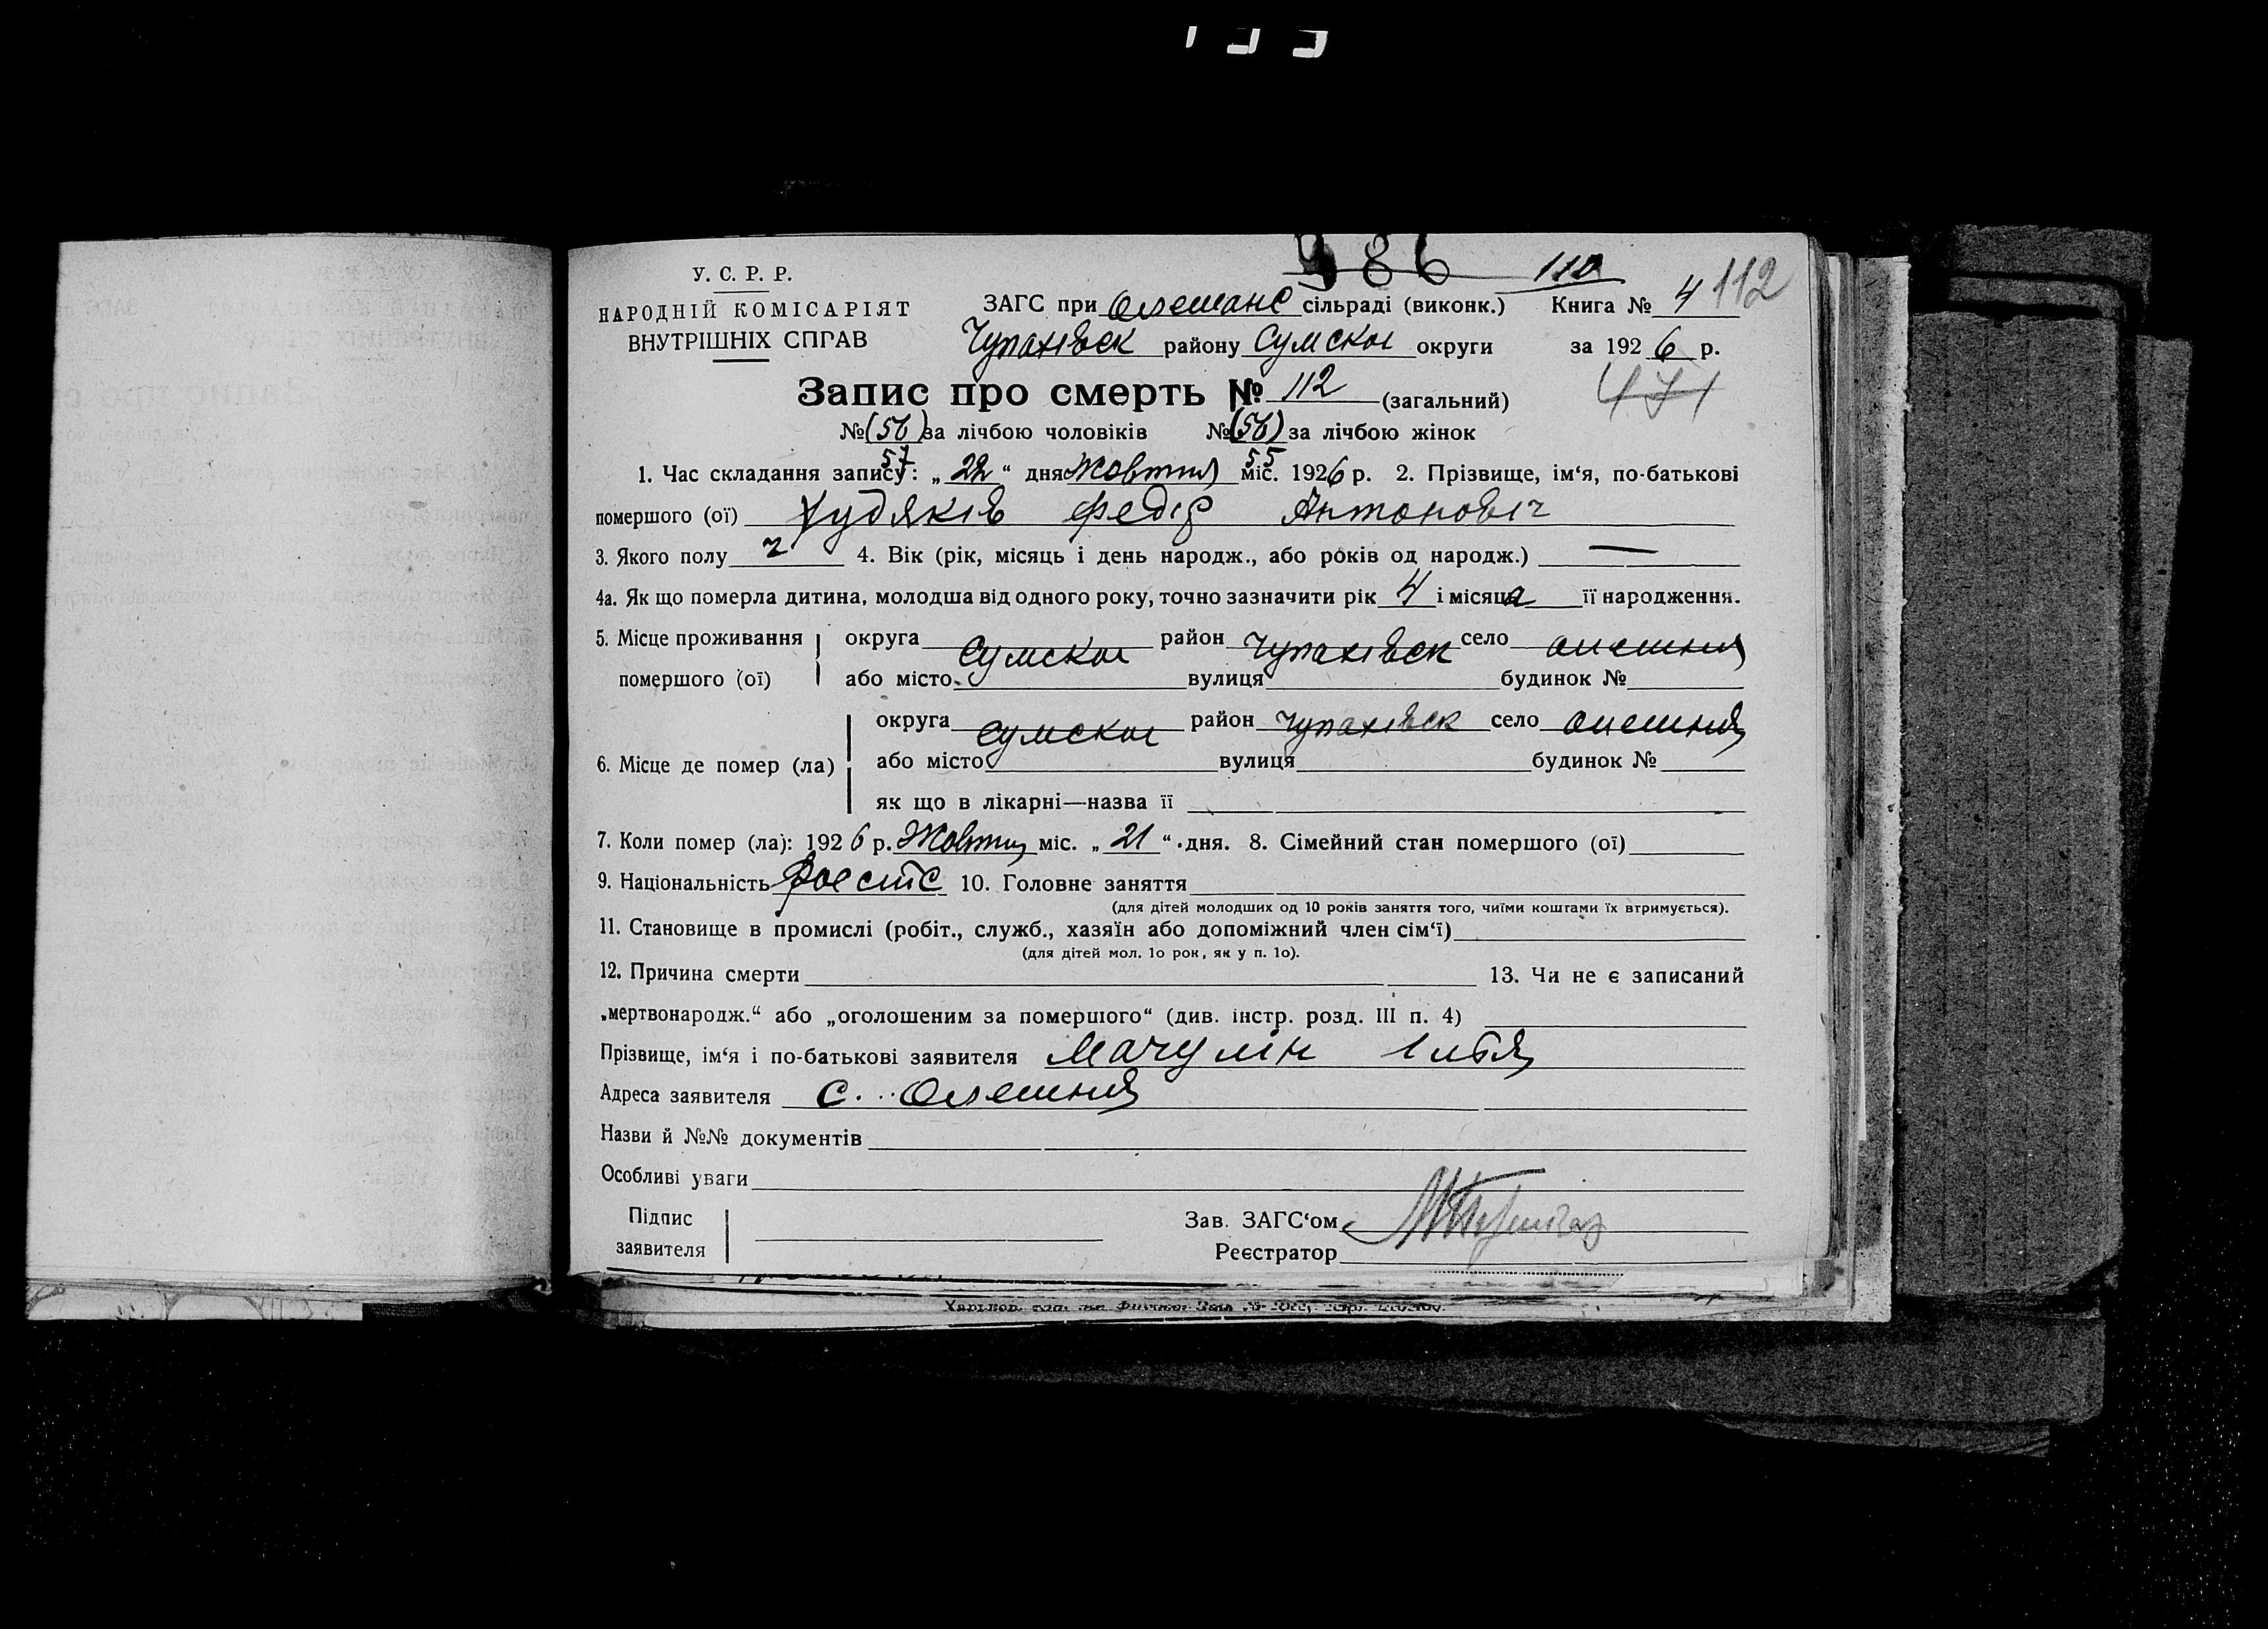 986 110
У. С. Р. Р.
НАРОДНІЙ КОМІСАРІЯТ
ВНУТРІШНІХ СПРАВ
ЗАГС при Олешанс сільраді (виконк.) Книга № 4 112
Чупахівск району Сумскої округи за 1926 р.
Запис про смерть № 112 (загальний)
471
№ (56) за лічбою чоловіків № (56) за лічбою жінок
57 55
1. Час складання запису: „22“ дня Жовтня міс. 1926 р. 2. Прізвище, ім‘я, по-батькові
помершого (ої) Худяків Федір Антоновіч
3. Якого полу ч 4. Вік (рік, місяць і день народж., або років од народж.) —
4а. Як що померла дитина, молодша від одного року, точно зазначити рік 4 і місяца її народження.
5. Місце проживання помершого (ої) округа Сумскої район Чупахівск село Олешня
або місто вулиця будинок №
6. Місце де помер (ла) округа Сумскої район Чупахівск село Олешня
або місто вулиця будинок №
як що в лікарні—назва її
7. Коли помер (ла): 1926 р. Жовтня міс. „21“ дня. 8. Сімейний стан помершого (ої)
9. Національність 10. Головне заняття
(для дітей молодших од 10 років заняття того, чиїми коштами їх втримується).
11. Становище в промислі (робіт., служб., хазяїн або допоміжний член сім‘ї)
(для дітей мол. 1о рок, як у п. 1о).
12. Причина смерти 13. Чи не є записаний
„мертвонародж.“ або „оголошеним за помершого“ (див. інстр. розд. III п. 4)
Прізвище, ім‘я і по-батькові заявителя Мачулін Ілья
Адреса заявителя с. Олешня
Назви й №№ документів
Особливі уваги
Підпис
заявителя
Зав. ЗАГС‘ом
Реєстратор